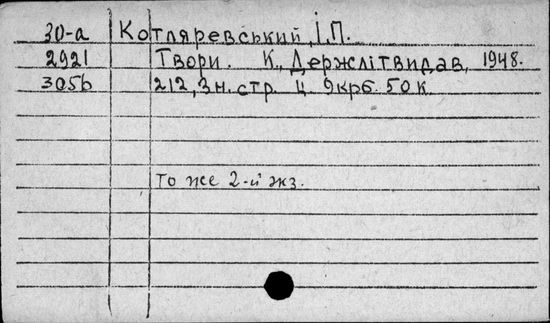 30-а Котляревський, І.П.
2921 Твори. К., Держлітвидав, 1948.
3056 212, 3 н. стр. ц. 9крб. 50 к.
то же 2-й экз.